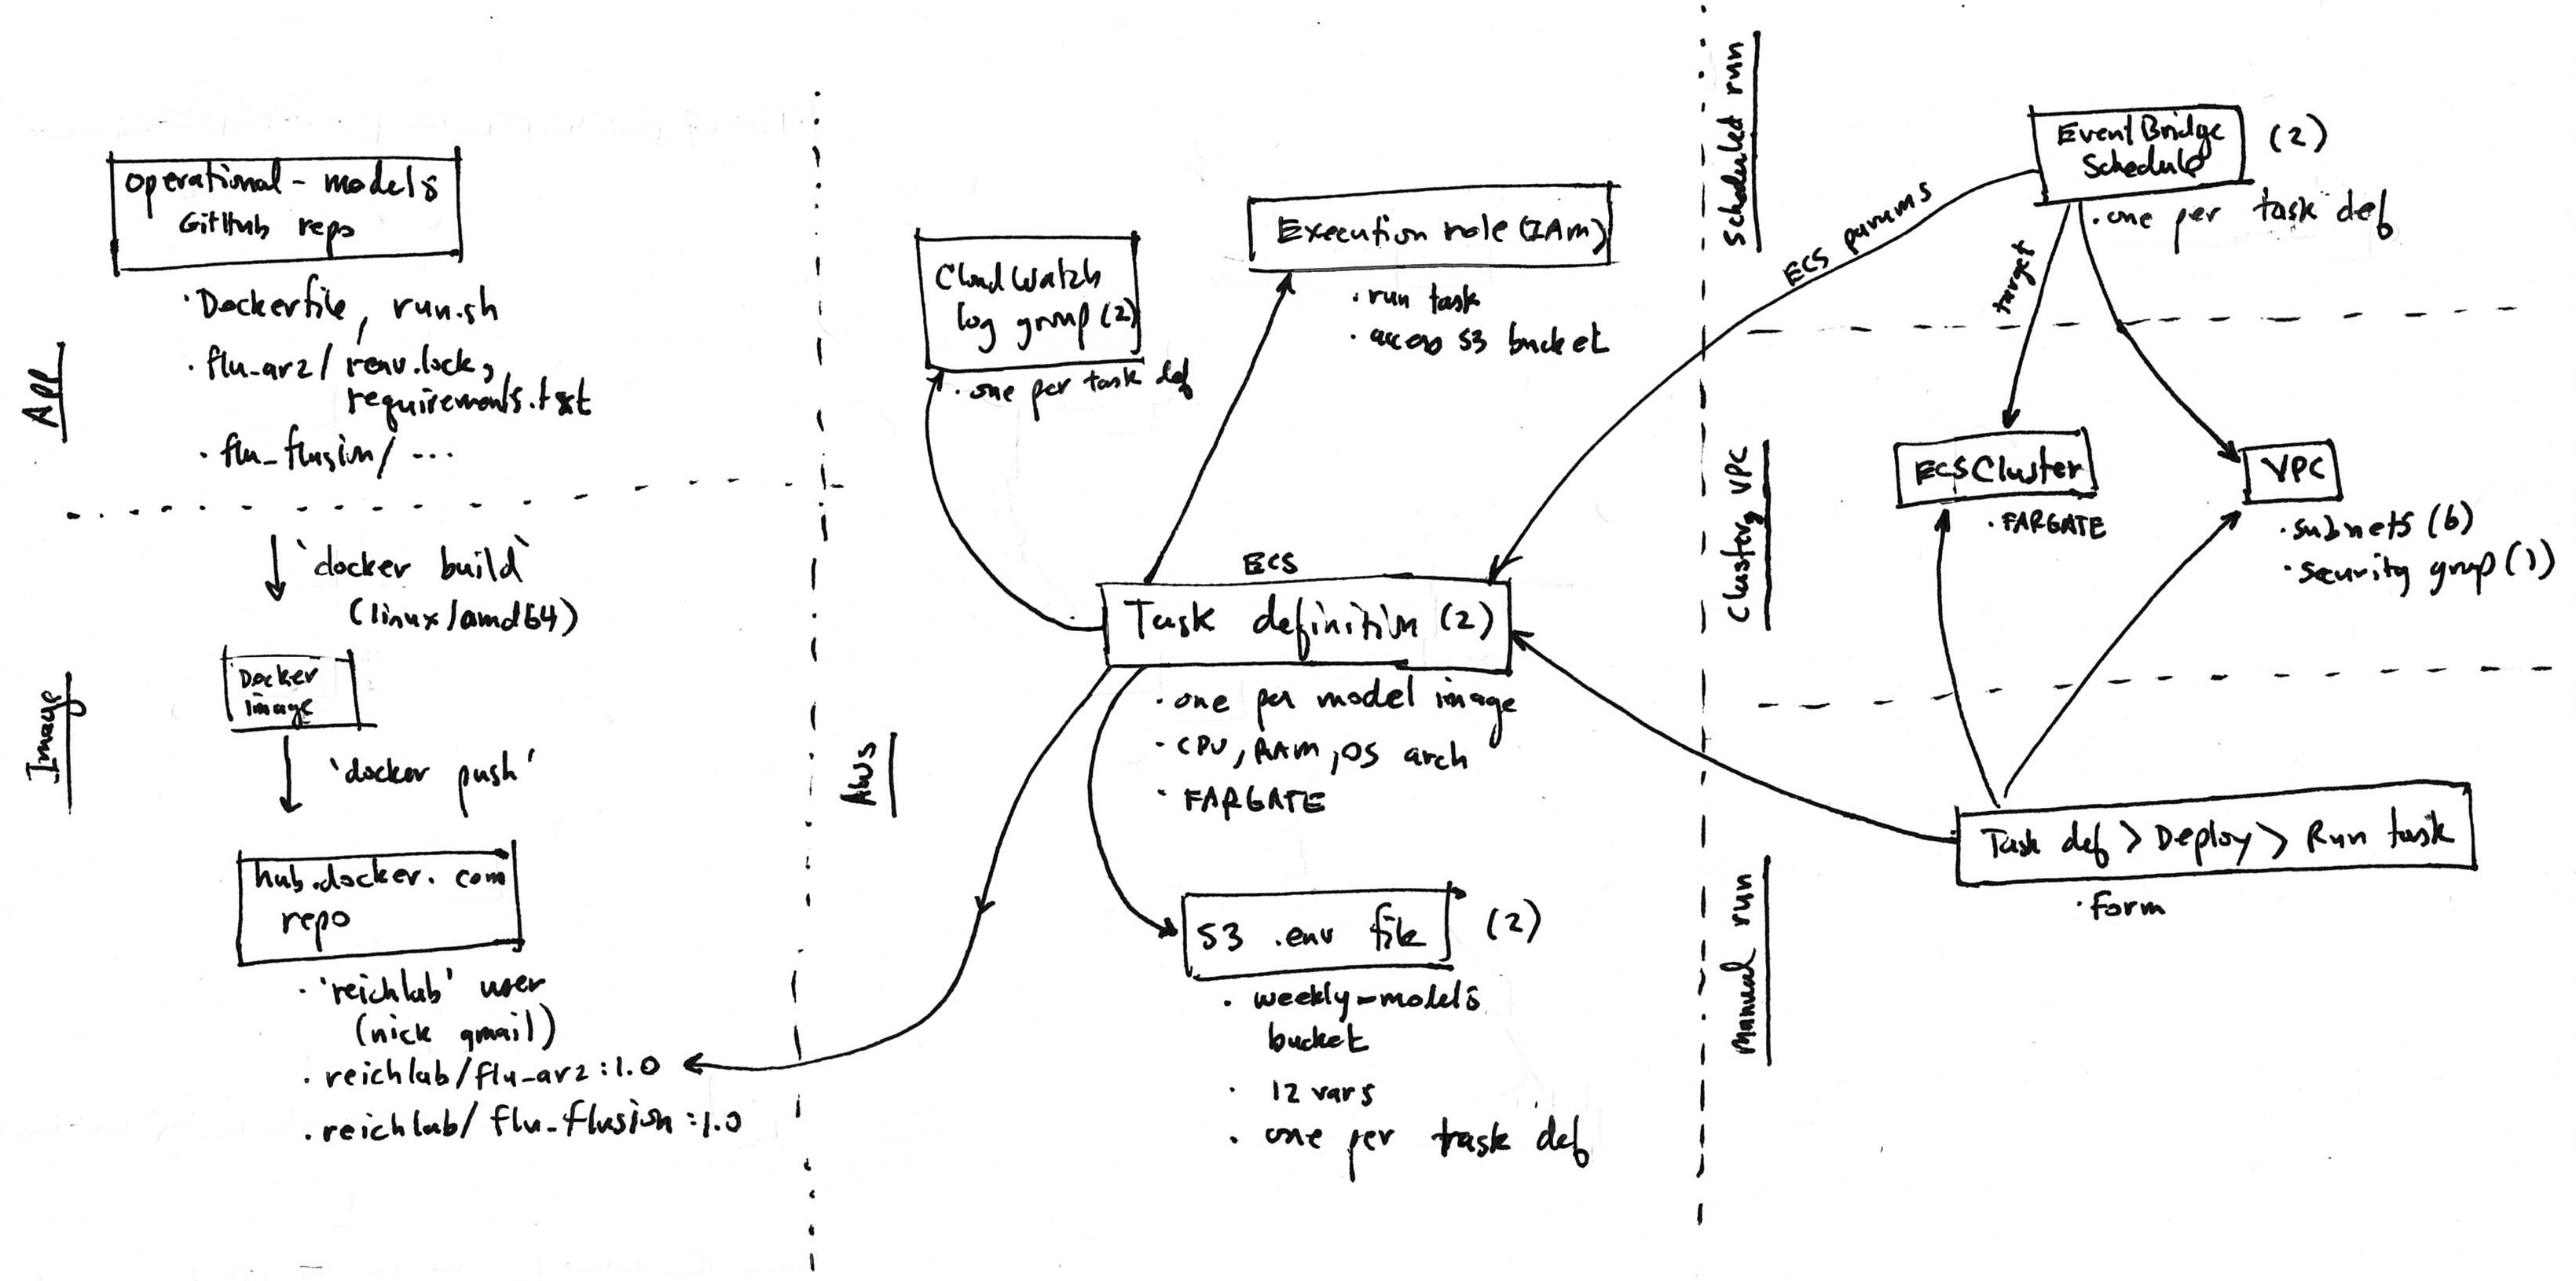 App
operational-models
GitHub repo
· Dockerfile, run.sh
· flu_ar2/ renv.lock,
requirements.txt
· flu_flusion/ ...
Image
`docker build`
(linux/amd64)
Docker
image
'docker push'
hub.docker.com
repo
· 'reichlab' user
(nick gmail)
· reichlab/flu_ar2:1.0
· reichlab/flu_flusion:1.0
AWS
CloudWatch
log group (2)
· one per task def
Execution role (IAM)
· run task
· access S3 bucket
ECS
Task definition (2)
· one per model image
· CPU, RAM, OS arch
· FARGATE
S3 .env file (2)
· weekly-models
bucket
· 12 vars
· one per task def
Scheduled run
EventBridge (2)
Schedule
· one per task def
ECS params
target
Cluster, VPC
ECS Cluster
· FARGATE
VPC
· subnets (6)
· security group (1)
Manual run
Task def > Deploy > Run task
· Form